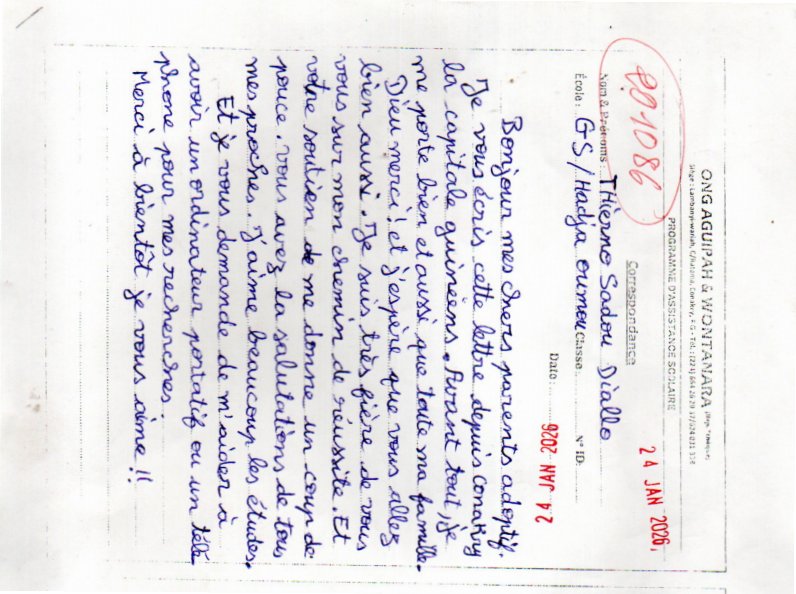 ONG AGUIPAH & WONTAMARA
PROGRAMME D'ASSISTANCE SCOLAIRE
24 JAN 2026
Correspondance
891086
Nom & Prénoms : THierno Sadou Diallo
École : GS/Hadja oumou Classe N° ID:
Date : 24 JAN 2026
Bonjour mes chers parents adoptif.
Je vous écris cette lettre depuis Conakry
la capitale guinéens. Avant tout, je
me porte bien et aussi que toute ma famille.
Dieu merci ! et j'espère que vous allez
bien aussi. Je suis très fière de vous
vous sur mon chemin de réussite. Et
votre soutien de me donne un coup de
pouce. vous avez la salutations de tous
mes proches. J'aime beaucoup les études.
Et je vous demande de m'aider à
avoir un ordinateur portatif ou un télé-
phone pour mes recherches
Merci à bientôt je vous aime !!